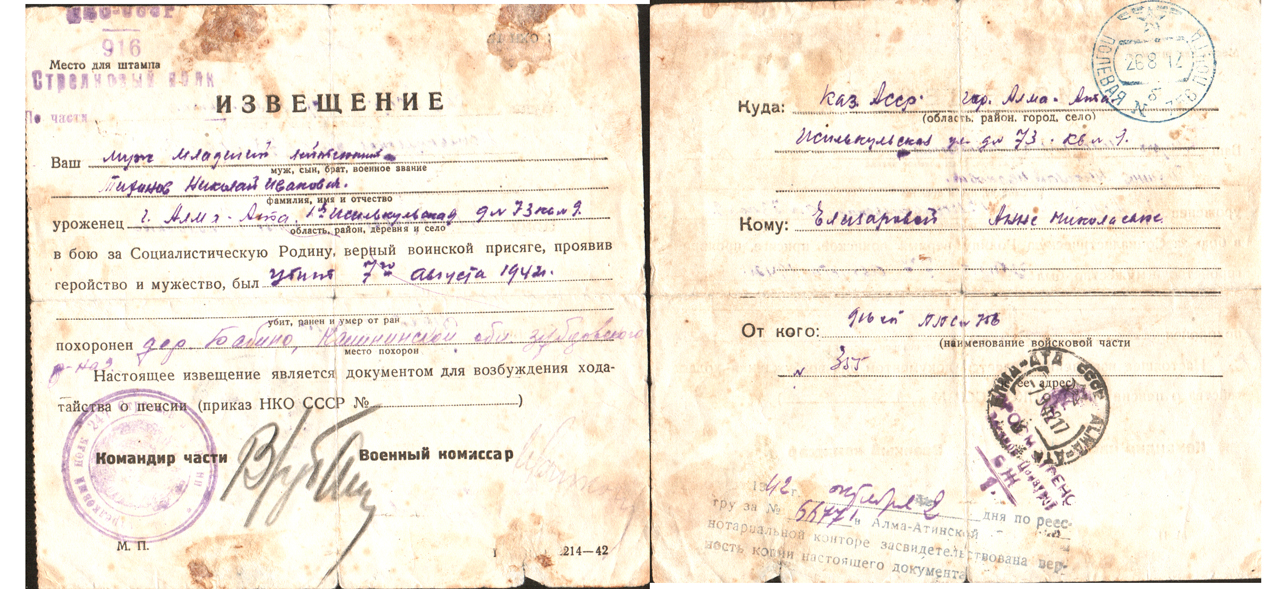 НКО-СССР
916
Место для штампа
Стрелковый полк
По части
ИЗВЕЩЕНИЕ
Ваш муж младший лейтенант
муж, сын, брат, военное звание
Николай Иванович.
фамилия, имя и отчество
уроженец г. Алма-Ата. Исилькульская д № 73 кв № 9.
область, район, деревня и село
в бою за Социалистическую Родину, верный воинской присяге, проявив
геройство и мужество, был убит 7го августа 1942г.
убит, ранен и умер от ран
похоронен дер Бабино, Калининской обл Зубцовского
место похорон
р-на
Настоящее извещение является документом для возбуждения хода-
тайства о пенсии (приказ НКО СССР №)
Командир части
Военный комиссар
М. П.
214—42
Куда: Каз. АССР. гор. Алма-Ата
(область, район, город, село)
Исилькульская ул. д № 73. кв № 9.
Кому: Елизаровой Анне Николаевне
От кого:
(наименование войсковой части
№ 355
ее адрес)
ПОЛЕВАЯ ПОЧТА №
26 8
АЛМА-АТА СССР
ALMA-ATA
1942г. октября 2 дня по реес-
тру за № в Алма-Атинской
нотариальной конторе засвидетельствована вер-
ность копии настоящего документа